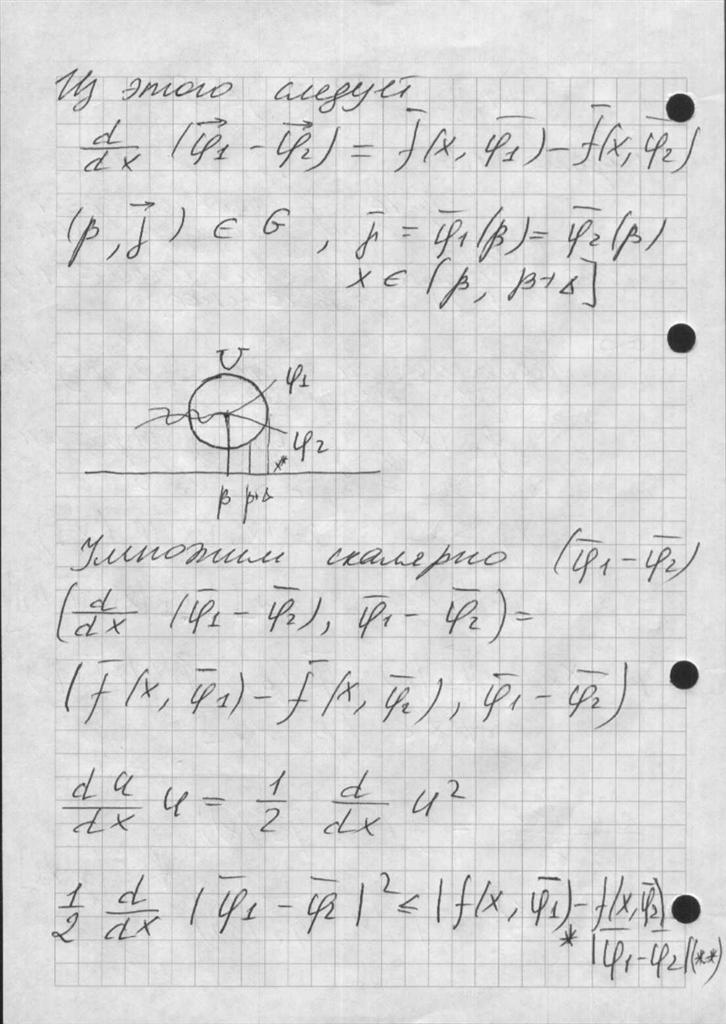 Из этого следует
d/dx (φ⃗1 - φ⃗2) = f̄(x, φ̄1) - f̄(x, φ̄2)
(β, j⃗) ∈ G , j̄ = φ̄1(β) = φ̄2(β)
x ∈ [β, β+Δ]
U
φ1
φ2
x*
β β+Δ
Умножим скалярно (φ̄1 - φ̄2)
(d/dx (φ̄1 - φ̄2), φ̄1 - φ̄2) =
(f̄(x, φ̄1) - f̄(x, φ̄2), φ̄1 - φ̄2)
du/dx u = 1/2 d/dx u²
1/2 d/dx |φ̄1 - φ̄2|² ≤ |f(x, φ̄1) - f(x, φ̄2)|
* |φ̄1 - φ̄2| (**)